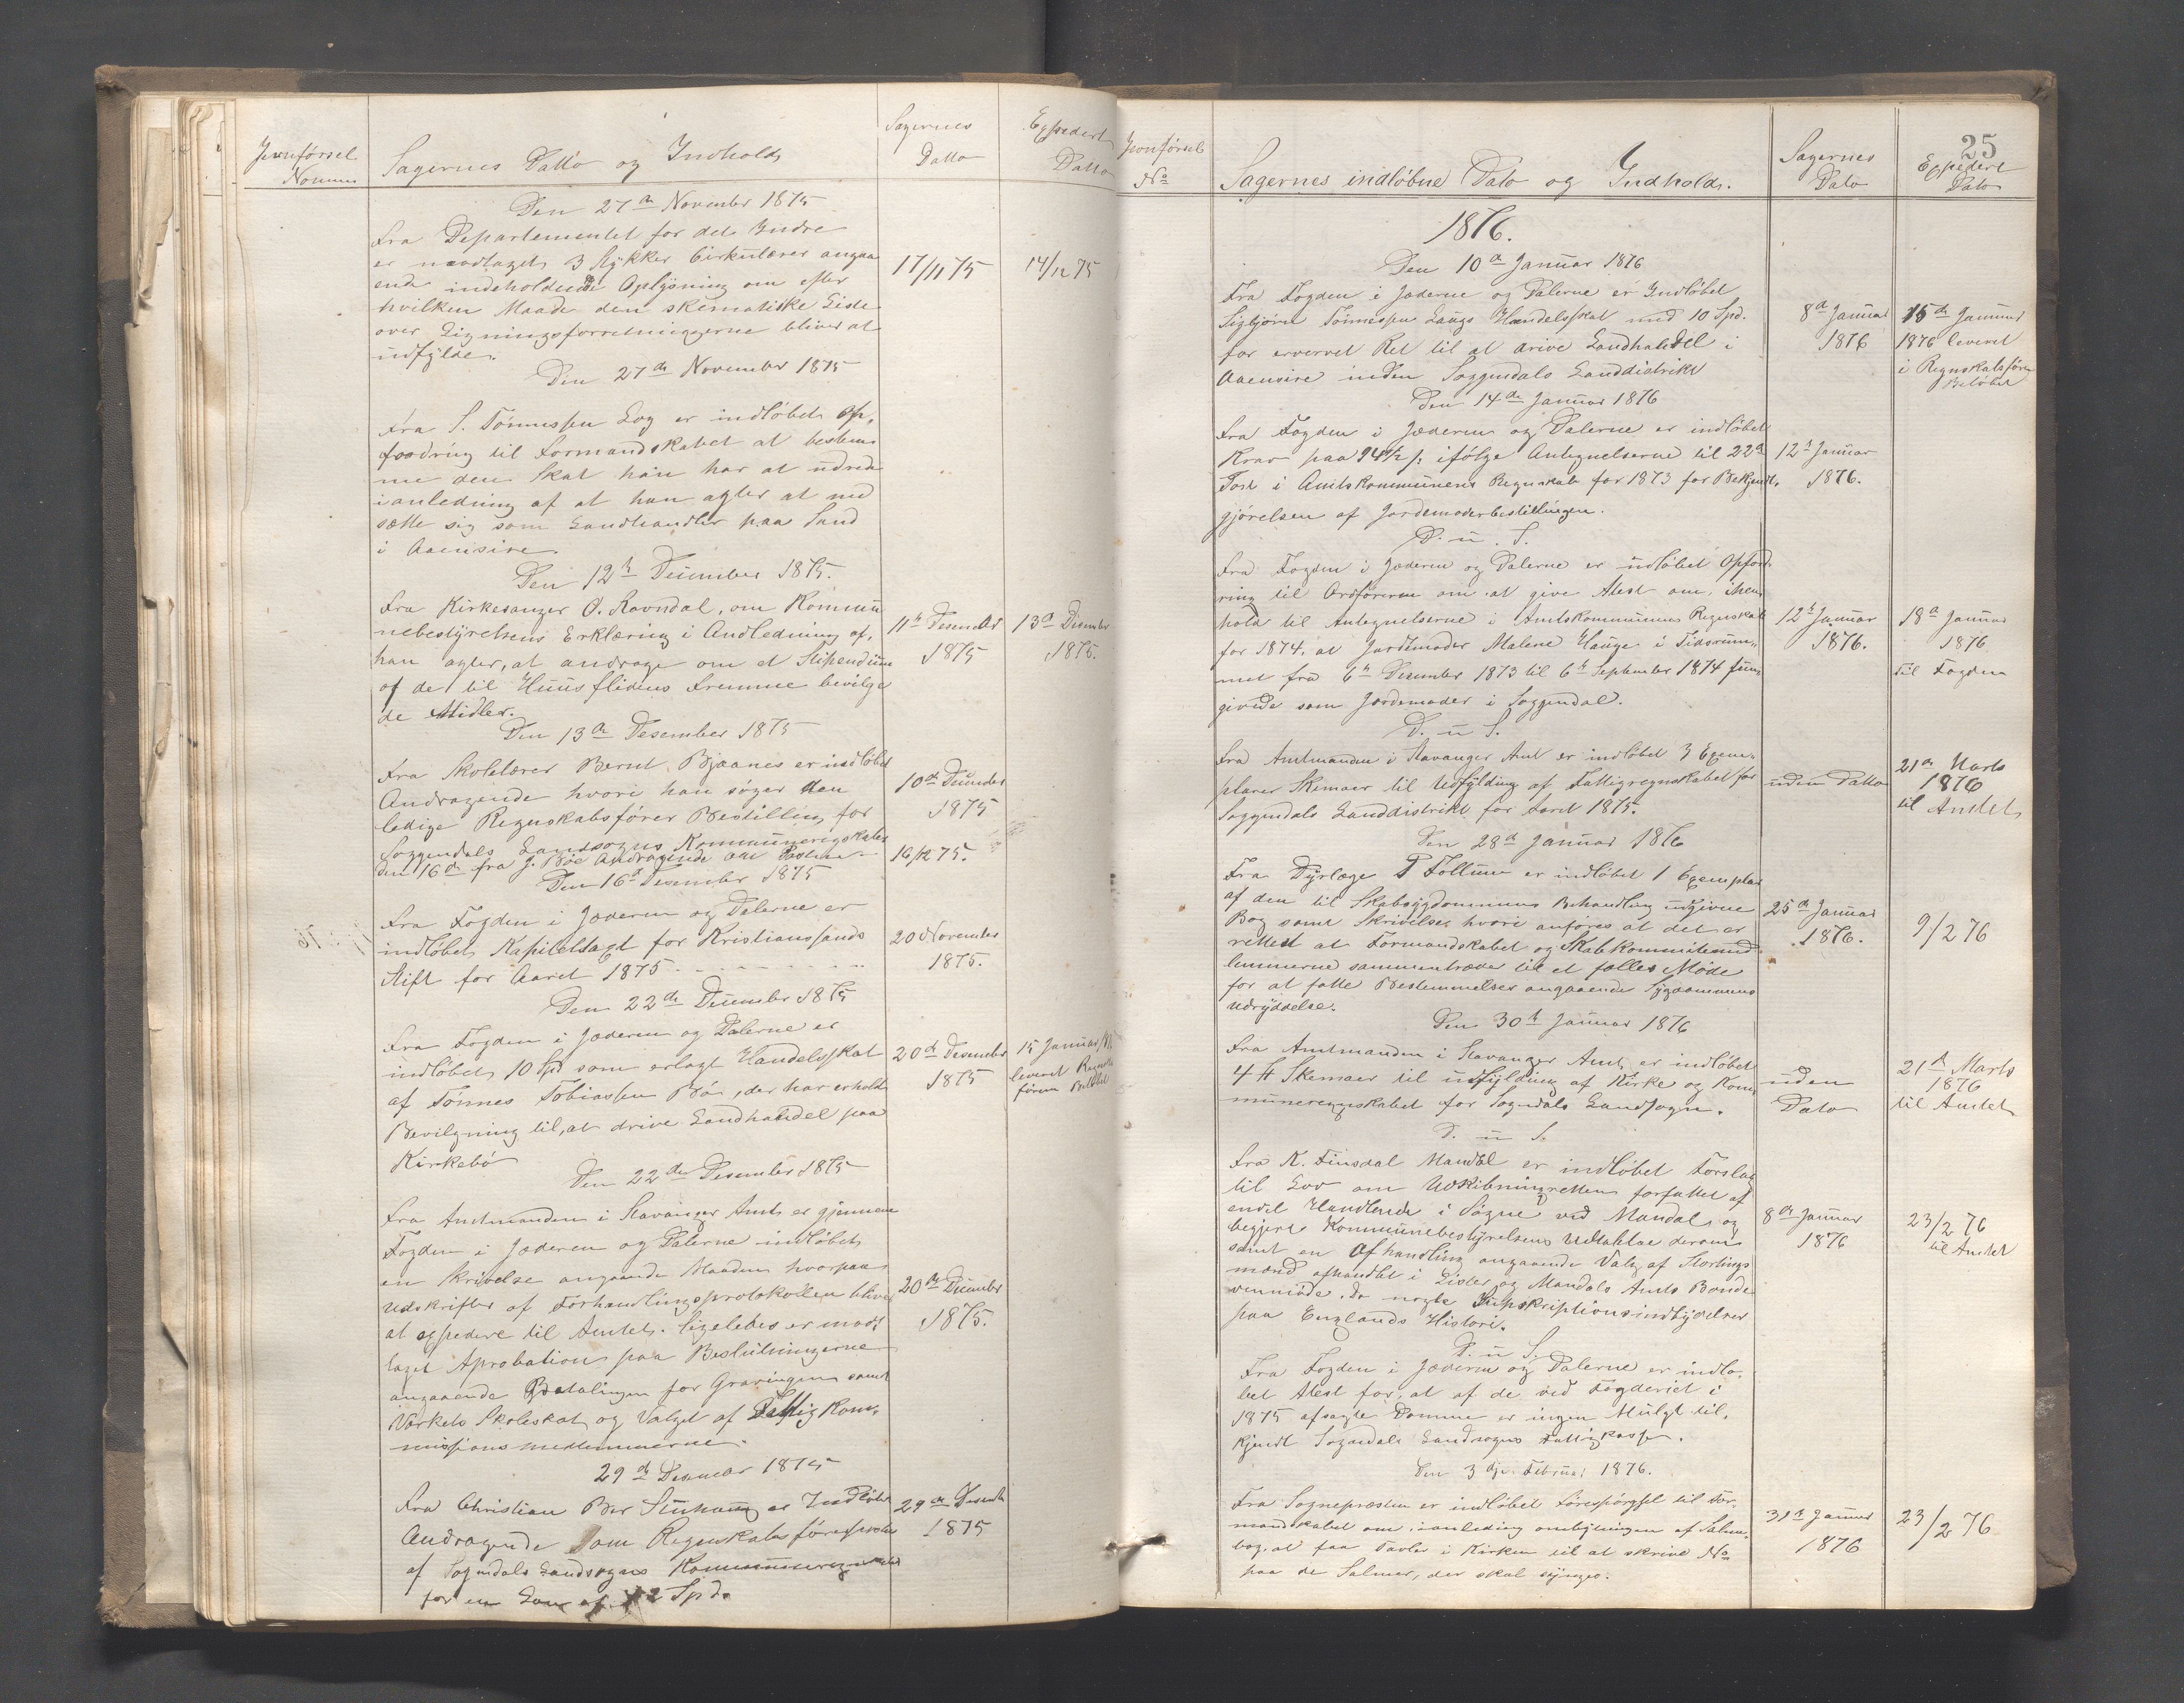 Jevnførsel
Nommer
Sagernes Datto og Indhold
Sagernes
Datto
Expedert
Datto
Den 27de November 1875
Fra Departementet for det Indre
er modtaget 3 Stykker Cirkulærer angaa
ende indeholdende Oplysning om efter
hvilken Maade den skematiske Liste
over Ligningsforretningerne bliver at
udfylde.
17/11 75
14/12 75
Den 27de November 1875
Fra S. Tönnessen Log er indløbet Op-
fordring til Formandskabet at bestem
me den Skat han har at udrede
i anledning af at han agter at ned
sætte sig som Landhandler paa Sand
i Aaensire.
Den 12te Desember 1875.
Fra Kirkesanger O. Ravndal, om Kommu
nebestyrelsens Erklæring i Andledning af,
han agter, at andrage om et Stipendium
af de til Huusflidens Fremme bevilge
de Midler.
11te Desember
1875
13de Desember
1875.
Den 13de Desember 1875
Fra Skolelærer Bernt Bjaanes er indløbet
Andragende hvori han søger den
ledige Regnskabsfører Bestilling for
Soggendals Landsogns Kommuneregnskaber
10de Desember
1875
Den 16de fra J. Böe Andragende om Posten
16/12 75.
Den 16de Desember 1875
Fra Fogden i Jæderen og Dalerne er
indløbet Kapiteltagt for Kristianssands
Stift for Aaret 1875
20 November
1875.
Den 22de Desember 1875
Fra Fogden i Jæderen og Dalerne er
indløbet 10 Spd som erlagt Handelsskat
af Tönnes Tobiassen Bö, der har erholdt
Bevilgning til, at drive Landhandel paa
Kirkebö
20de Desember
1875
15 Januar
leveret Regnska
føreren Beløbet
Den 22de Desember 1875
Fra Amtmanden i Stavanger Amt er gjennem
Fogden i Jæderen og Dalerne indløbet
en Skrivelse angaaende Maaden hvorpaa
Udskrifter af Forhandlingsprotokollen bliver
at expedere til Amtet. ligeledes er mod
taget Aprobation paa Beslutningerne
angaaende Betalingen for Gravingen samt
Værkets Skoleskat og Valget af Fattigkom-
missionsmedlemmerne.
20de Desember
1875.
29de Desember 1875
Fra Christian Ber Stuhaug er Indløbet
Andragende som Regnskabsførerposten
af Sogndals Landsogns Kommuneregnskaber
for en Løn af 12 Spd.
29de Desemb
1875
25
Jevnførsel
No
Sagernes indløbne Dato og Indhold.
Sagernes
Dato
Expedert
Dato
1876.
Den 10de Januar 1876
Fra Fogden i Jæderne og Dalerne er Indløbet
Sigbjörn Tönnessen Laugs Handelsskat med 10 Spd.
for ervervet Ret til at drive Landhandel i
Aaensire inden Soggendals Landdistrikt
8de Januar
1876
15de Januar
1876 leveret
i Regnskabsfører
Beløbet
Den 14de Januar 1876
Fra Fogden i Jæderen og Dalerne er indløbet
Krav paa 94½ s. ifölge Antegnelserne til 22de
Post i Amtskommunens Regnskab for 1873 for Bekjendt-
gjørelsen af Jordemoderbestillingen.
12te Januar
1876.
D. u. S.
Fra Fogden i Jæderen og Dalerne er indløbet Opford
ring til Ordføreren om at give Atest om, i hen
hold til Antegnelserne i Amtskommunens Regnskab
for 1874, at Jordemoder Malene Hauge i Tidsrum-
met fra 6te Desember 1873 til 6te September 1874 fun-
gerede som Jordemoder i Soggendal.
12te Januar
1876.
18de Januar
1876
til Fogden
D. u S.
Fra Amtmanden i Stavanger Amt er indløbet 3 Exem-
plarer Skemaer til Udfylding af Fattigregnskabet for
Soggendals Landdistrikt for Aaret 1875.
uden Datto
21de Marts
1876
til Amtet
Den 28de Januar 1876
Fra Dyrlæge P Follum er indløbet 1 Exemplar
af den til Skabsygdommens Behandling udgivne
Bog samt Skrivelse, hvori anføres at det er
rettest at Formandskabet og Skabkommitemed
lemmerne sammentræder til et fælles Møde
for at fatte Bestemmelser angaaende Sygdommens
udryddelse.
25de Januar
1876.
9/2 76
Den 30te Januar 1876
Fra Amtmanden i Stavanger Amt, er indløbet
4 St Skemaer til udfylding af Kirke og Kom-
muneregnskabet for Sogndals Landsogn.
uden
Dato
21de Marts
1876
til Amtet
D. u S.
Fra K. Finsdal Mandal er indløbet Forslag
til Lov om Udskibningretten forfattet af
endel Handlende i Søgne ved Mandal, og
begjert Kommunebestyrelsens Udtalelse derom
samt en Afhandling angaaende Valg af Stortings
mænd afhandlet i Lister og Mandals Amts Bonde
venmøde. Do nogle Supskriptionsindbydelser
paa Englands Histori.
8de Januar
1876
23/2 76
til Amtet
D. u S.
Fra Fogden i Jæderen og Dalerne er indlø-
bet Atest for, at af de ved Fogderiet i
1875 afsagte Domme er ingen Mulgt til-
kjendt Sogndals Landsogns Fattigkasse.
Den 3dje Februar 1876.
Fra Sognepræsten er indløbet Forespørgsel til For-
mandskabet om, i anledning ombytningen af Salme-
bog, at faa Tavler i Kirken til at skrive No
paa de Salmer, der skal synges.
31te Januar
1876
23/2 76